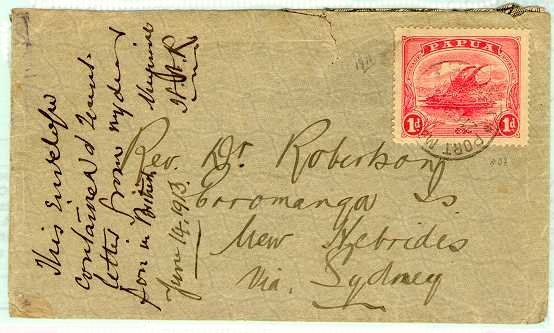 This Envelope
contained Test.
letter from my dear
son in British
New Guinea
H. A. R
June 14, 1913
PAPUA
1d 1d
PORT M
Rev. Dr. Robertson
Erromanga Is
New Hebrides
Via. Sydney